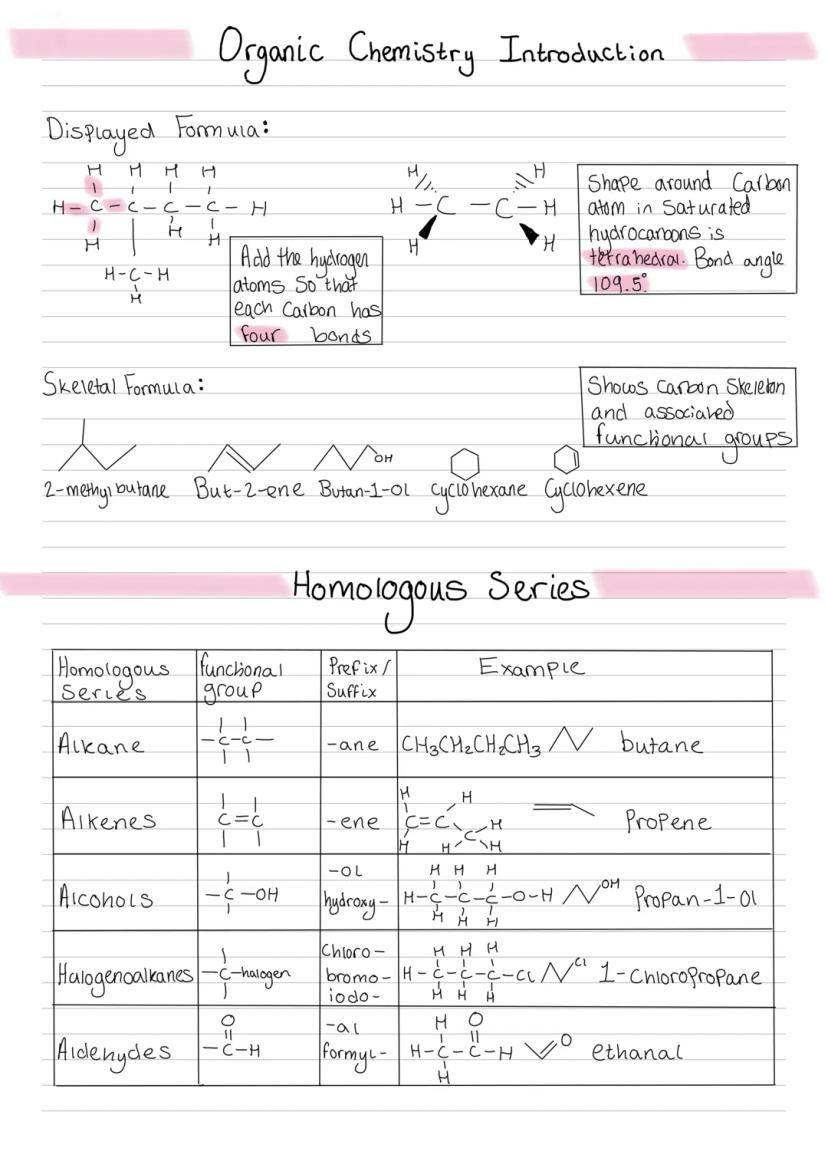 Organic Chemistry Introduction
Displayed Formula:
H H H H
H-C-C-C-C-H
H H H
H-C-H
H
Add the hydrogen
atoms so that
each Carbon has
four bonds
H H
H-C-C-H
H H
Shape around Carbon
atom in saturated
hydrocarbons is
tetrahedral. Bond angle
109.5°
Skeletal Formula:
Shows Carbon Skeleton
and associated
functional groups
OH
2-methylbutane But-2-ene Butan-1-ol cyclohexane Cyclohexene
Homologous Series
Homologous Series functional group Prefix/Suffix Example
Alkane -C-C- -ane CH₃CH₂CH₂CH₃ butane
Alkenes C=C -ene
H H
C=C H
H C
H H
Propene
Alcohols -C-OH -ol hydroxy-
H H H
H-C-C-C-O-H OH Propan-1-ol
H H H
Halogenoalkanes -C-halogen Chloro- bromo- iodo-
H H H
H-C-C-C-Cl Cl 1-Chloropropane
H H H
Aldehydes
O
-C-H
-al formyl-
H O
H-C-C-H O ethanal
H